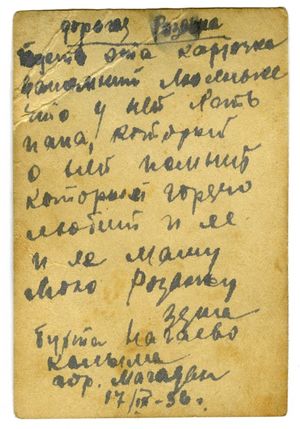 дорогая Розочка
Пусть эта карточка
напомнит Люленьке
что у ней есть
папа, который
о ней помнит
который горячо
любит и ле
и ле маму
мою Розочку
Зяма
бухта Нагаево
Колыма
гор. Магадан
17/IX-36г.